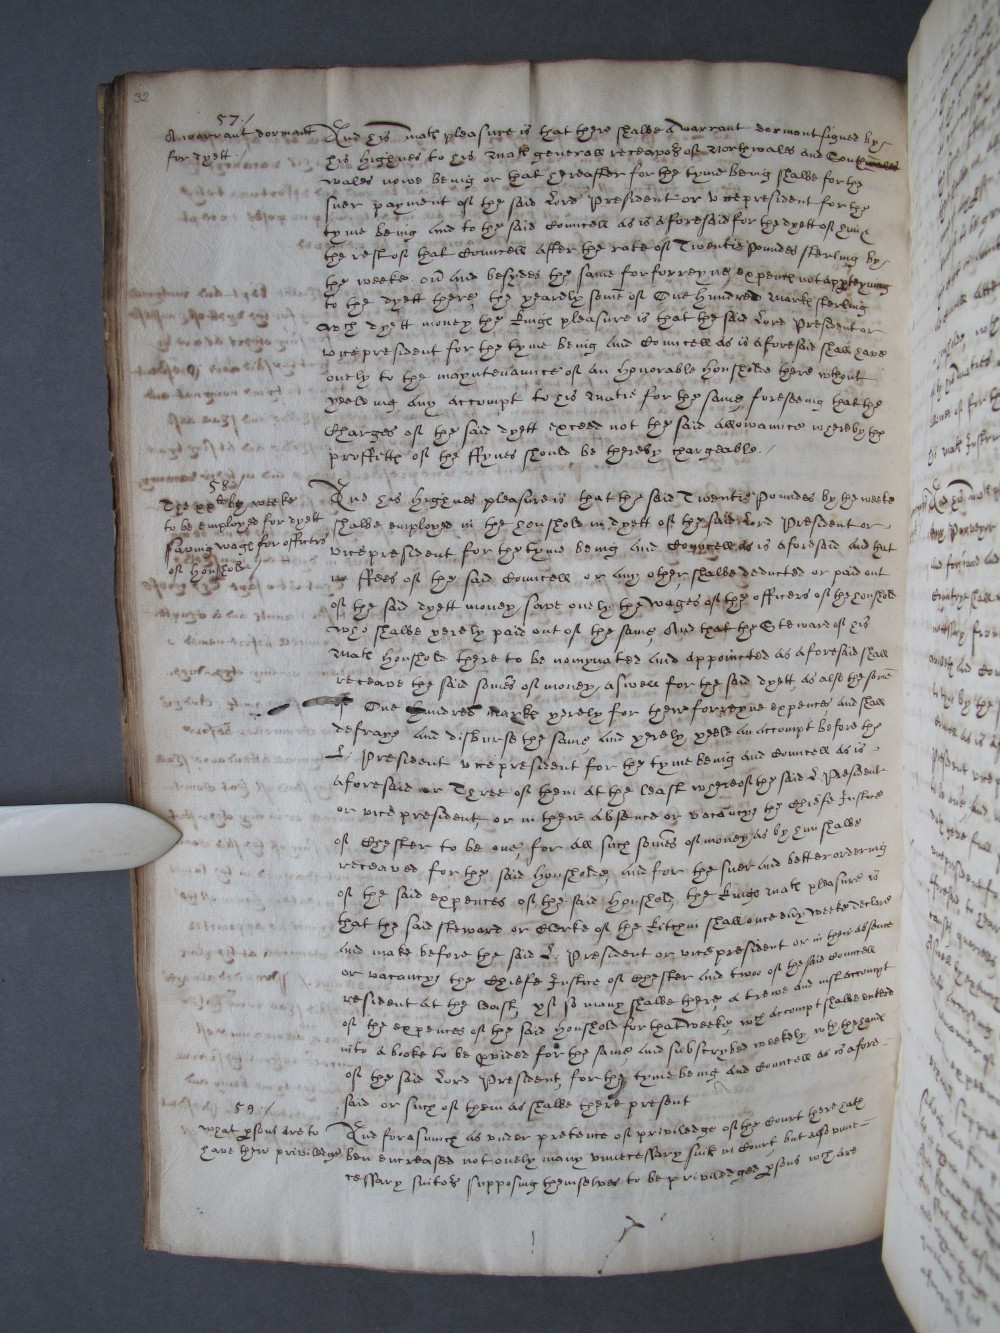 32
57:/
A warrant dormant
for dyett
And his matꝭ pleasure is that there shalbe a warrant dormant signed by
his highnes to his Matꝭ generall receavors of Northwales and South
wales nowe being or that hereafter for the tyme being shalbe for the
suer payment of the said Lord President or vicepresident for the
tyme being and to the said Councell as is aforesaid for the dyett of him &
the rest of that Councell after the rate of Twentie Poundes sterling by
the weeke and besydes the same for forreyne expencꝭ not apperteyning
to the dyett there, the yeardly some of One hundred markꝭ sterling
wch dyett money the Kingꝭ pleasure is that the said Lord President or
vicepresident for the tyme being and Councell as is aforesaid shall have
onely to the mayntenaunce of an honorable houshold there wthout
yeelding any accompt to his Matie for the same, foreseeing that the
Charges of the said dyett exceed not the said allowance whereby the
proffittꝭ of the ffynes should be thereby chargeable./
58
The xxli by weeke
to be employed for dyett
saving wagꝭ for officers
of houshold /
And his highnes pleasure is that the said Twentie Poundes by the weeke
shalbe employed in the houshold in dyett of the said Lord President or
vicepresident for the tyme being and Councell as is aforesaid and that
no ffees of the said Councell or any other shalbe deducted or paid out
of the said dyett money save onely the wages of the officers of the houshold
who shalbe yerely paid out of the same, And that the Steward of his
Matꝭ houshold there to be nomynated and appointed as aforesaid shall
receave the said somes of money, aswell for the said dyett, as also the some
of One hundred markꝭ yerely for there forreyne expences and shall
defraye and disburse the same, and yerely yeeld an accompt before the
L: President vicepresident for the tyme being and Councell as is
aforesaid or Three of them at the least whereof the said L: President
or vice president, or in their absence or vacancye the Chiefe Justice
of Chester to be one, for all such somes of money as by him shalbe
receaved for the said houshold, and for the suer and better ordering
of the said expences of the said houshold, the Kingꝭ Matꝭ pleasure is
that the said steward or Clerke of the Kitchin shall once euy weeke declare
and make before the said L: President or vicepresident or in their absence
or vacancye the Chiefe Justice of Chester and twoo of the said Councell
resident at the least, yf so many shalbe there, a trewe and just accompt
of the expences of the said houshold for that weeke, wch accompt shalbe entred
into a booke to be pvided for the same and subscrybed weekely wth the hand
of the said Lord President, for the tyme being and Councell as is afore-
said or such of them as shalbe there present
59:/
What psons are to
have their priviledge
And forasmuch as vnder pretence of priviledge of the Court there hath
ben encreased not onely many vnnecessary suitꝭ in Court, but also vnne-
cessary suitors supposing themselves to be priviledged psons wch are